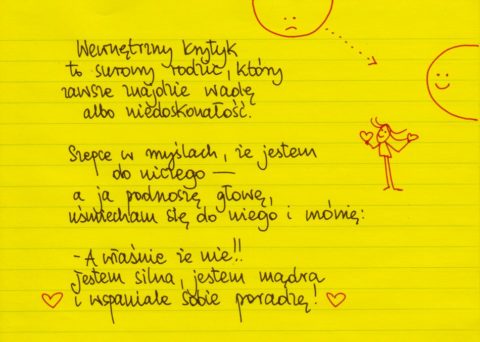 Wewnętrzny krytyk
to surowy rodzic, który
zawsze znajdzie wadę
albo niedoskonałość.
Szepce w myślach, że jestem
do niczego —
a ja podnoszę głowę,
uśmiecham się do niego i mówię:
- A właśnie że nie!!
Jestem silna, jestem mądra
i wspaniale sobie poradzę!